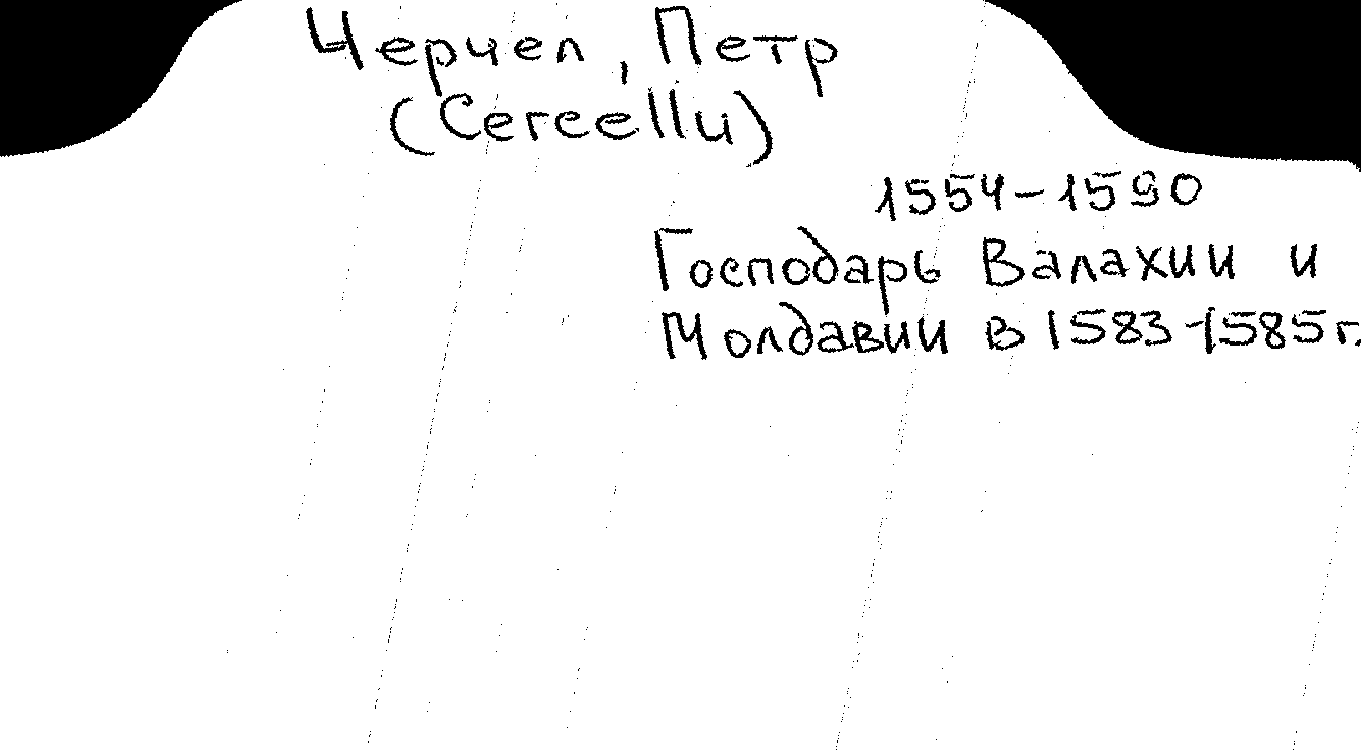 Черчел, Петр
(Cercellu)
1554-1590
Господарь Валахии и
Молдавии в 1583-1585 г.